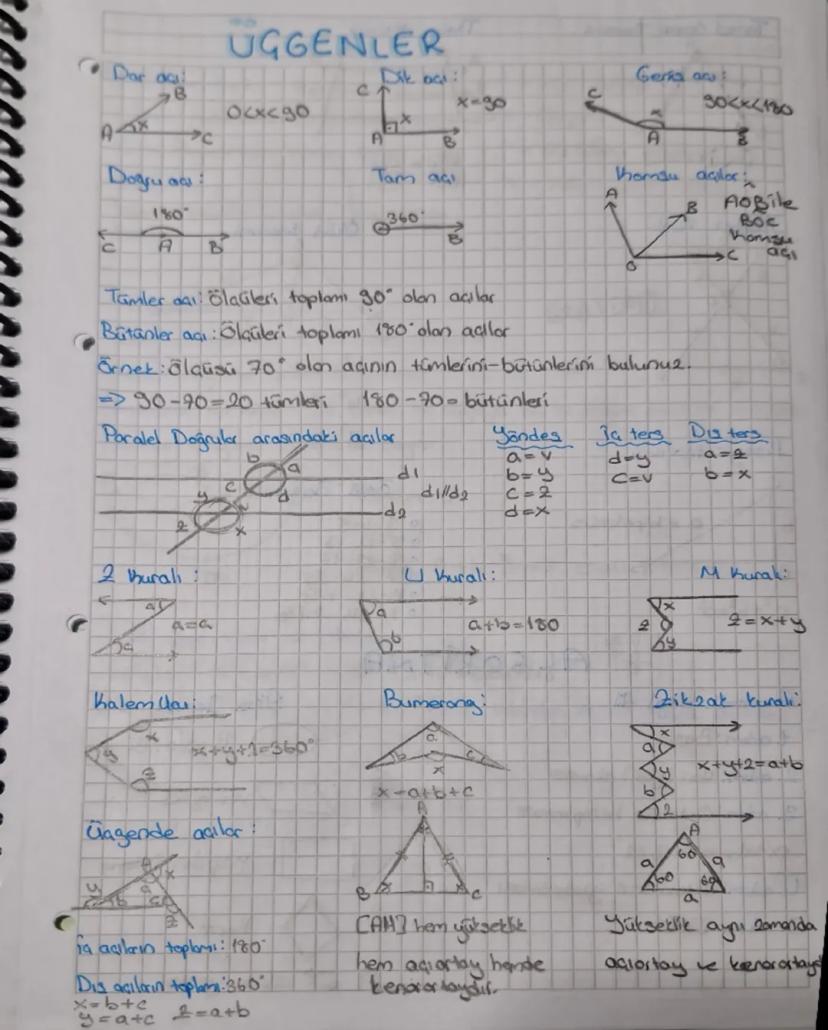 ÜÇGENLER
Dar açı:
Dik açı:
Geniş açı:
B
A
x
C
0<x<90
C
x
A
B
x=90
C
x
A
B
90<x<180
Doğru açı:
Tam açı
Komşu açılar:
180°
C A B
360°
B
A
B
O
C
AOB ile
BOC
komşu
açı
Tümler açı: Ölçüleri toplamı 90° olan açılar
Bütünler açı: Ölçüleri toplamı 180° olan açılar
Örnek: Ölçüsü 70° olan açının tümlerini-bütünlerini bulunuz.
=> 90-70=20 tümleri 180-70= bütünleri
Paralel Doğrular arasındaki açılar
b
a
c
d
d1
d1//d2
y
v
z
x
d2
Yöndes
a=v
b=y
c=z
d=x
İç ters
d=y
c=v
Dış ters
a=z
b=x
Z kuralı:
U kuralı:
M kuralı:
a
a
a=a
a
b
a+b=180
x
z
y
z=x+y
Kalem Ucu:
Bumerang:
Zikzak kuralı:
x
y
z
x+y+z=360°
a
b
c
x
x=a+b+c
x
a
y
b
z
x+y+z=a+b
Üçgende açılar:
A
x
a
y
b
c
z
A
B
C
A
60
a
a
60
60
a
İç açıların toplamı: 180°
Dış açıların toplamı: 360°
x=b+c
y=a+c z=a+b
[AM] hem yükseklik
hem açıortay hemde
kenarortaydır.
Yükseklik aynı zamanda
açıortay ve kenarortaydı